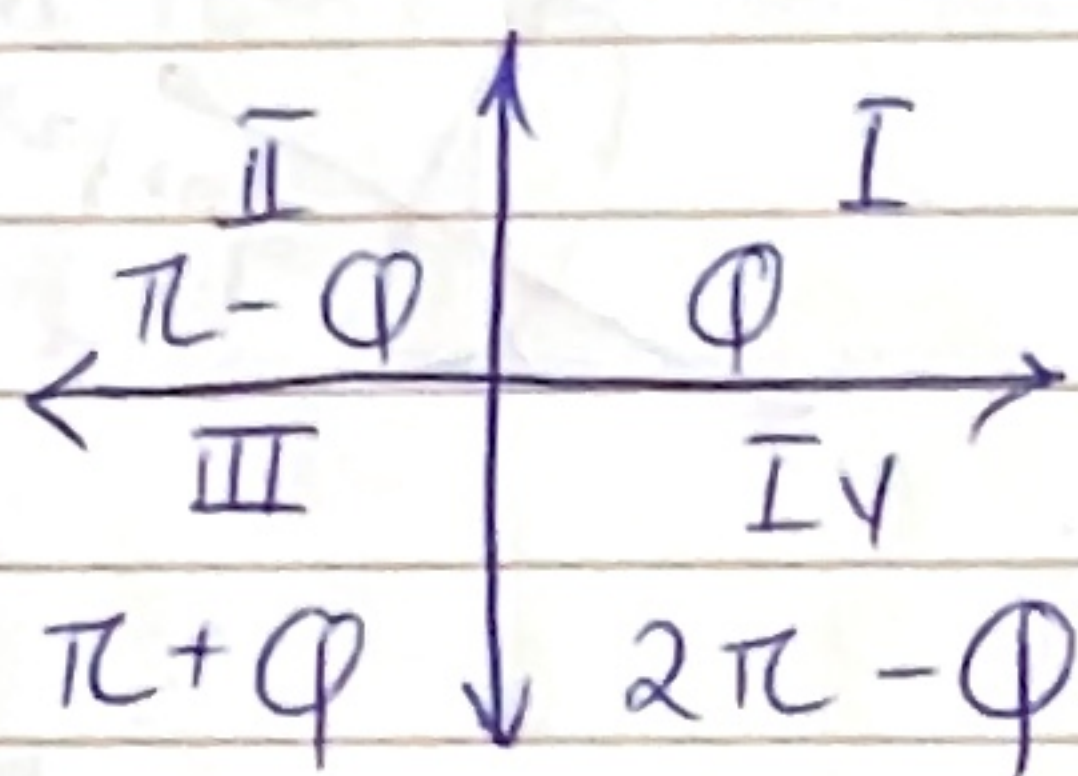 II I
π - φ φ
III IV
π + φ 2π - φ